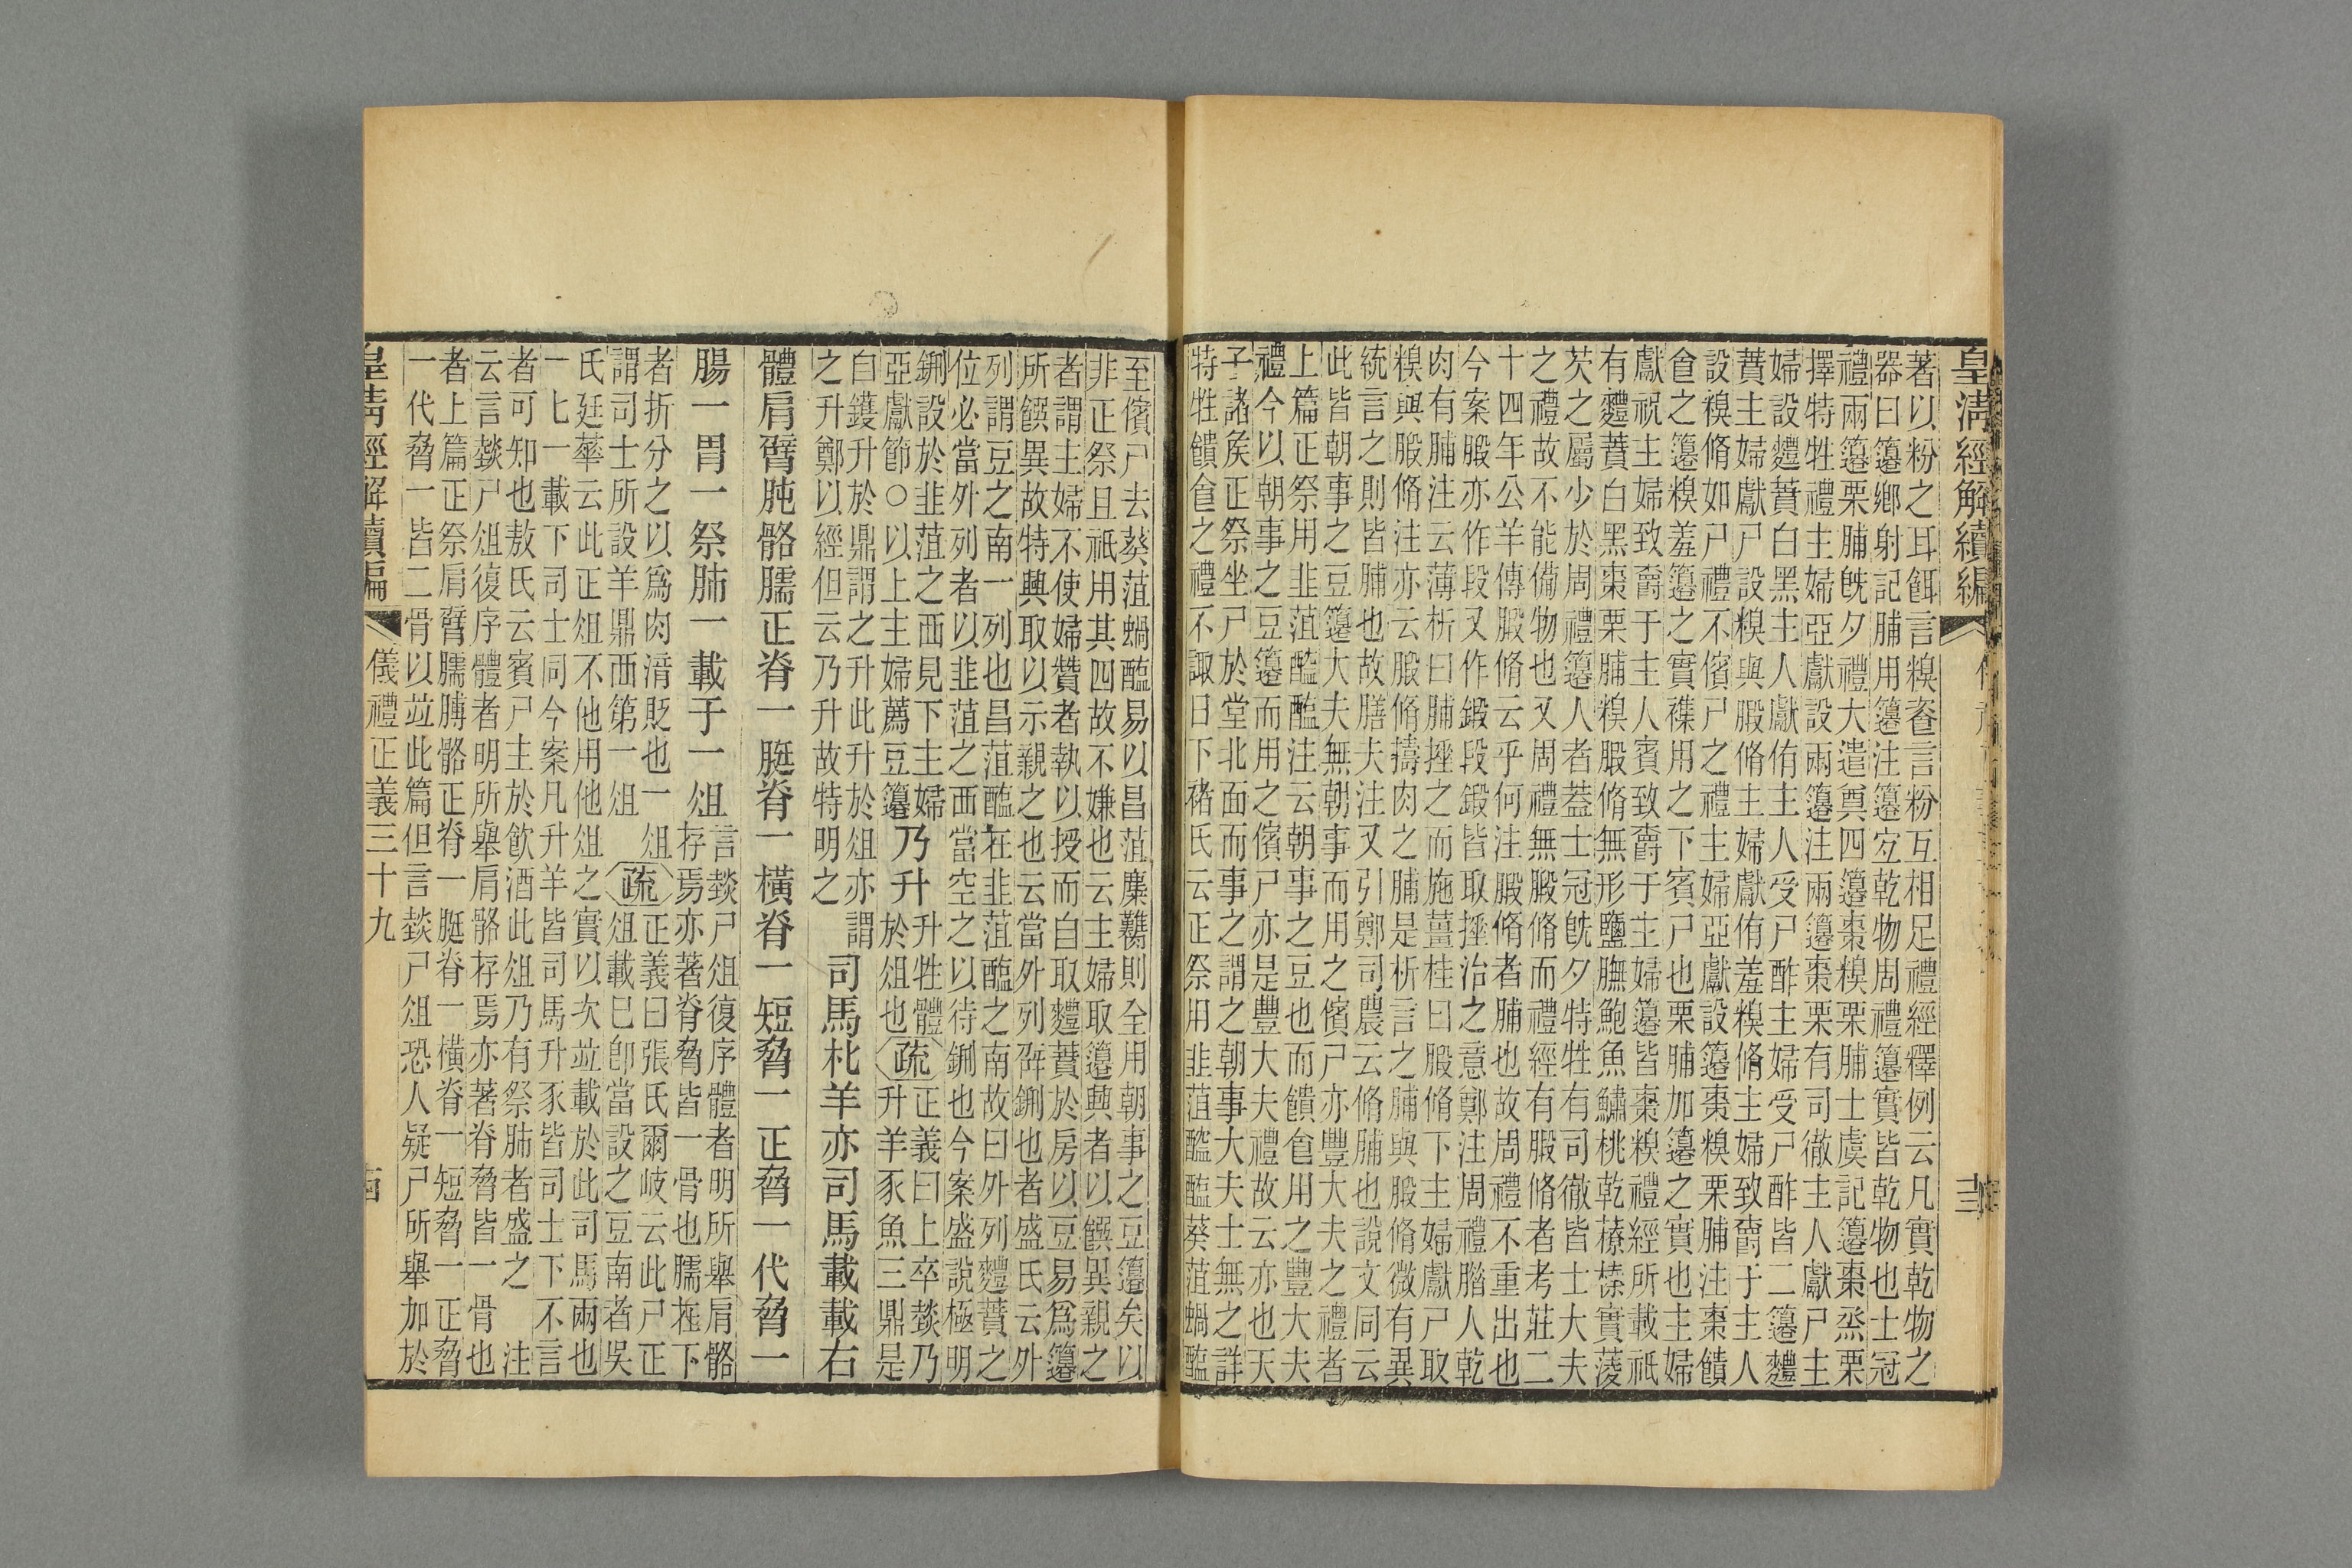 皇清經解續編
著以粉之耳餌言糗餈言粉互相足禮經釋例云凡實乾物之
器曰籩鄉射記脯用籩注籩宜乾物周禮籩實皆乾物也士冠
禮兩籩栗脯旣夕禮大遣奠四籩棗糗栗脯士虞記籩棗烝栗
擇特牲禮主婦亞獻設兩籩注兩籩棗栗有司徹主人獻尸主
婦設麷蕡白黑主人獻侑主人受尸酢主婦受尸酢皆二籩麷
蕡主婦獻尸設糗與腶脩主婦獻侑羞糗脩主婦致爵于主人
設糗脩如尸禮不儐尸之禮主婦亞獻設籩棗糗栗脯注棗饋
食之籩糗羞籩之實襍用之下賓尸也栗脯加籩之實也主婦
獻祝主婦致爵于主人賓致爵于主婦籩皆棗糗禮經所載祇
有麷蕡白黑棗栗脯糗腶脩無形鹽膴鮑魚鱐桃乾䕩榛實蔆
芡之屬少於周禮籩人者蓋士冠旣夕特牲有司徹皆士大夫
之禮故不能備物也又周禮無腶脩而禮經有腶脩者考莊二
十四年公羊傳腶脩云乎何注腶脩者脯也故周禮不重出也
今案腶亦作段又作鍛段鍛皆取捶治之意鄭注周禮腊人乾
肉有脯注云薄析曰脯捶之而施薑桂曰腶脩下主婦獻尸取
糗與腶脩注亦云腶脩擣肉之脯是析言之脯與腶脩微有異
統言之則皆脯也故膳夫注又引鄭司農云脩脯也說文同云
此皆朝事之豆籩大夫無朝事而用之儐尸亦豐大夫之禮者
上篇正祭用韭菹醓醢注云朝事之豆也而饋食用之豐大夫
禮今以朝事之豆籩而用之儐尸亦是豐大夫禮故云亦也天
子諸矦正祭坐尸於堂北面而事之謂之朝事大夫士無之詳
特牲饋食之禮不諏日下褚氏云正祭用韭菹醓醢葵菹蝸醢
至儐尸去葵菹蝸醢易以昌菹麋臡則全用朝事之豆籩矣以
非正祭且祇用其四故不嫌也云主婦取籩興者以饌異親之
者謂主婦不使婦贊者執以授而自取麷蕡於房以豆易爲籩
所饌異故特興取以示親之也云當外列𡨄鉶也者盛氏云外
列謂豆之南一列也昌菹醢在韭菹醢之南故曰外列麷蕡之
位必當外列者以韭菹之西當空之以待鉶也今案盛說極明
鉶設於韭菹之西見下主婦
亞獻節○以上主婦薦豆籩
乃升
升牲體
於俎也
疏
正義曰上卒燅乃
升羊豕魚三鼎是
自鑊升於鼎謂之升此升於俎亦謂
之升鄭以經但云乃升故特明之
司馬朼羊亦司馬載載右
體肩臂肫骼臑正脊一脡脊一橫脊一短脅一正脅一代脅一
腸一胃一祭肺一載于一俎
言燅尸俎復序體者明所舉肩骼
存焉亦著脊脅皆一骨也臑在下
者折分之以爲肉湆貶也一俎
謂司士所設羊鼎西第一俎
疏
正義曰張氏爾岐云此尸正
俎載已卽當設之豆南者吳
氏廷華云此正俎不他用他俎之實以次竝載於此司馬兩也
一匕一載下司士同今案凡升羊皆司馬升豕皆司士下不言
者可知也敖氏云賓尸主於飮酒此俎乃有祭肺者盛之 注
云言燅尸俎復序體者明所舉肩骼存焉亦著脊脅皆一骨也
者上篇正祭肩臂臑膊骼正脊一脡脊一橫脊一短脅一正脅
一代脅一皆二骨以竝此篇但言燅尸俎恐人疑尸所舉加於
皇淸經解續編 儀禮正義三十九